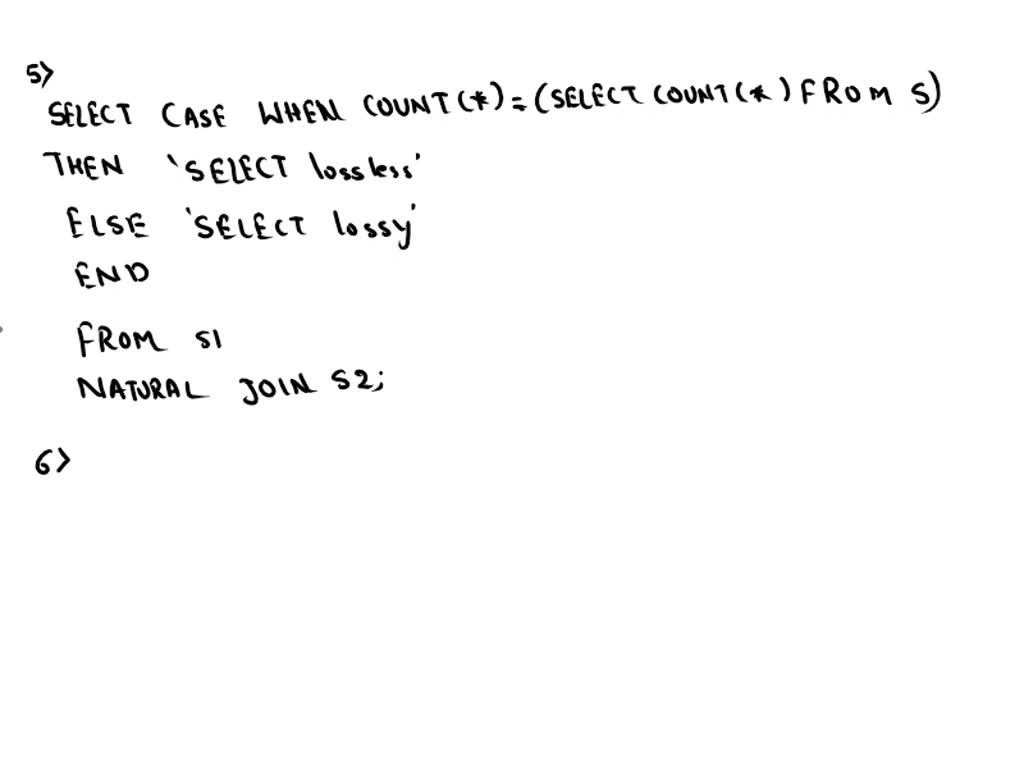 5>
SELECT CASE WHEN COUNT(*) = (SELECT COUNT(*) FROM S)
THEN 'SELECT lossless'
ELSE 'SELECT lossy'
END
FROM S1
NATURAL JOIN S2;
6>